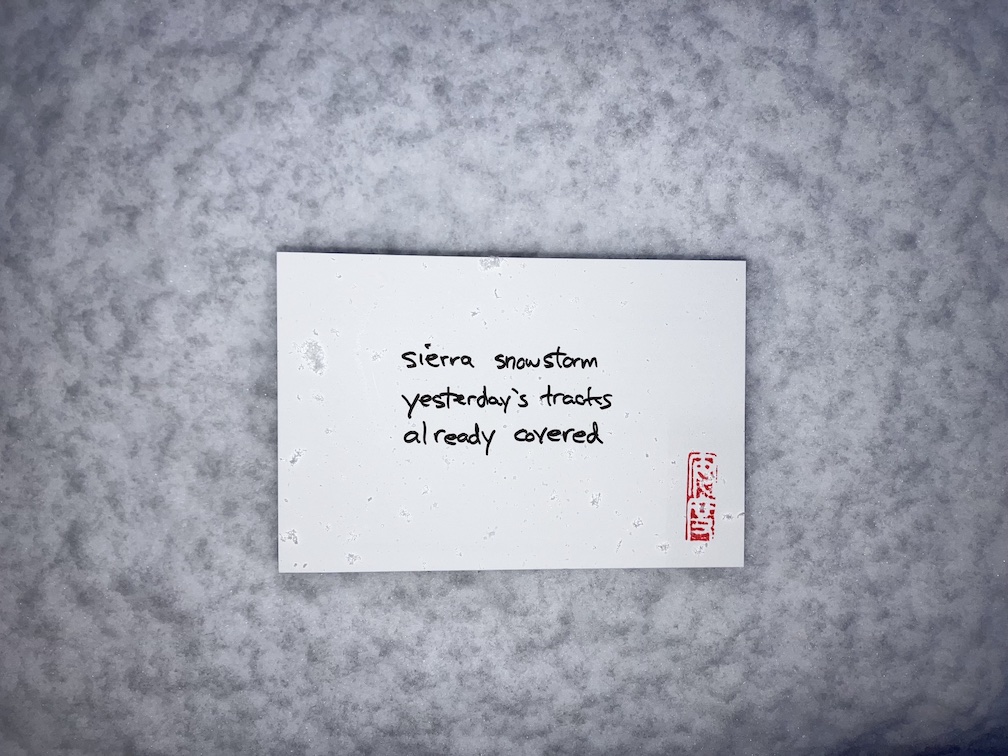 sierra snowstorm
yesterday's tracks
already covered